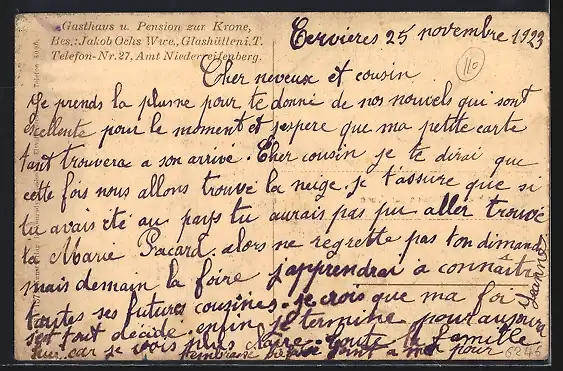 Gasthaus u. Pension zur Krone,
Bes.: Jakob Ochs Wwe., Glashütten i. T.
Telefon-Nr. 27, Amt Niederreifenberg.
Cervières 25 novembre 1923
110
Cher neveux et cousin
Je prends la plusne pour te donné de nos nouvels qui sont
excellente pour le moment et j'espere que ma petite carte
tant trouvera a son arrivé. Cher cousin je te dirai que
cette fois nous allons trouvé la neige. je t'assure que si
tu avais été au pays tu aurais pas pu aller trouvé
ta Marie Pacard. alors ne regrette pas ton dimand
mais demain la foire j'apprendrai à connaître
toutes ses futures cousines. je crois que ma foi
s'est tout décidé. enfin je termine pour aujour
hui car je vois plus claire. toute la famille
t'embrasse bien pour
Jeanne
6246